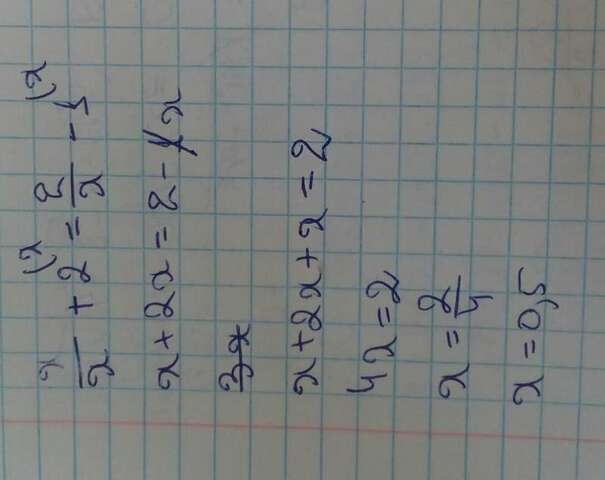 x/x + 2(x = 2/x - 1(x
x+2x=2-x
3x
x+2x+x=2
4x=2
x=2/4
x=0,5